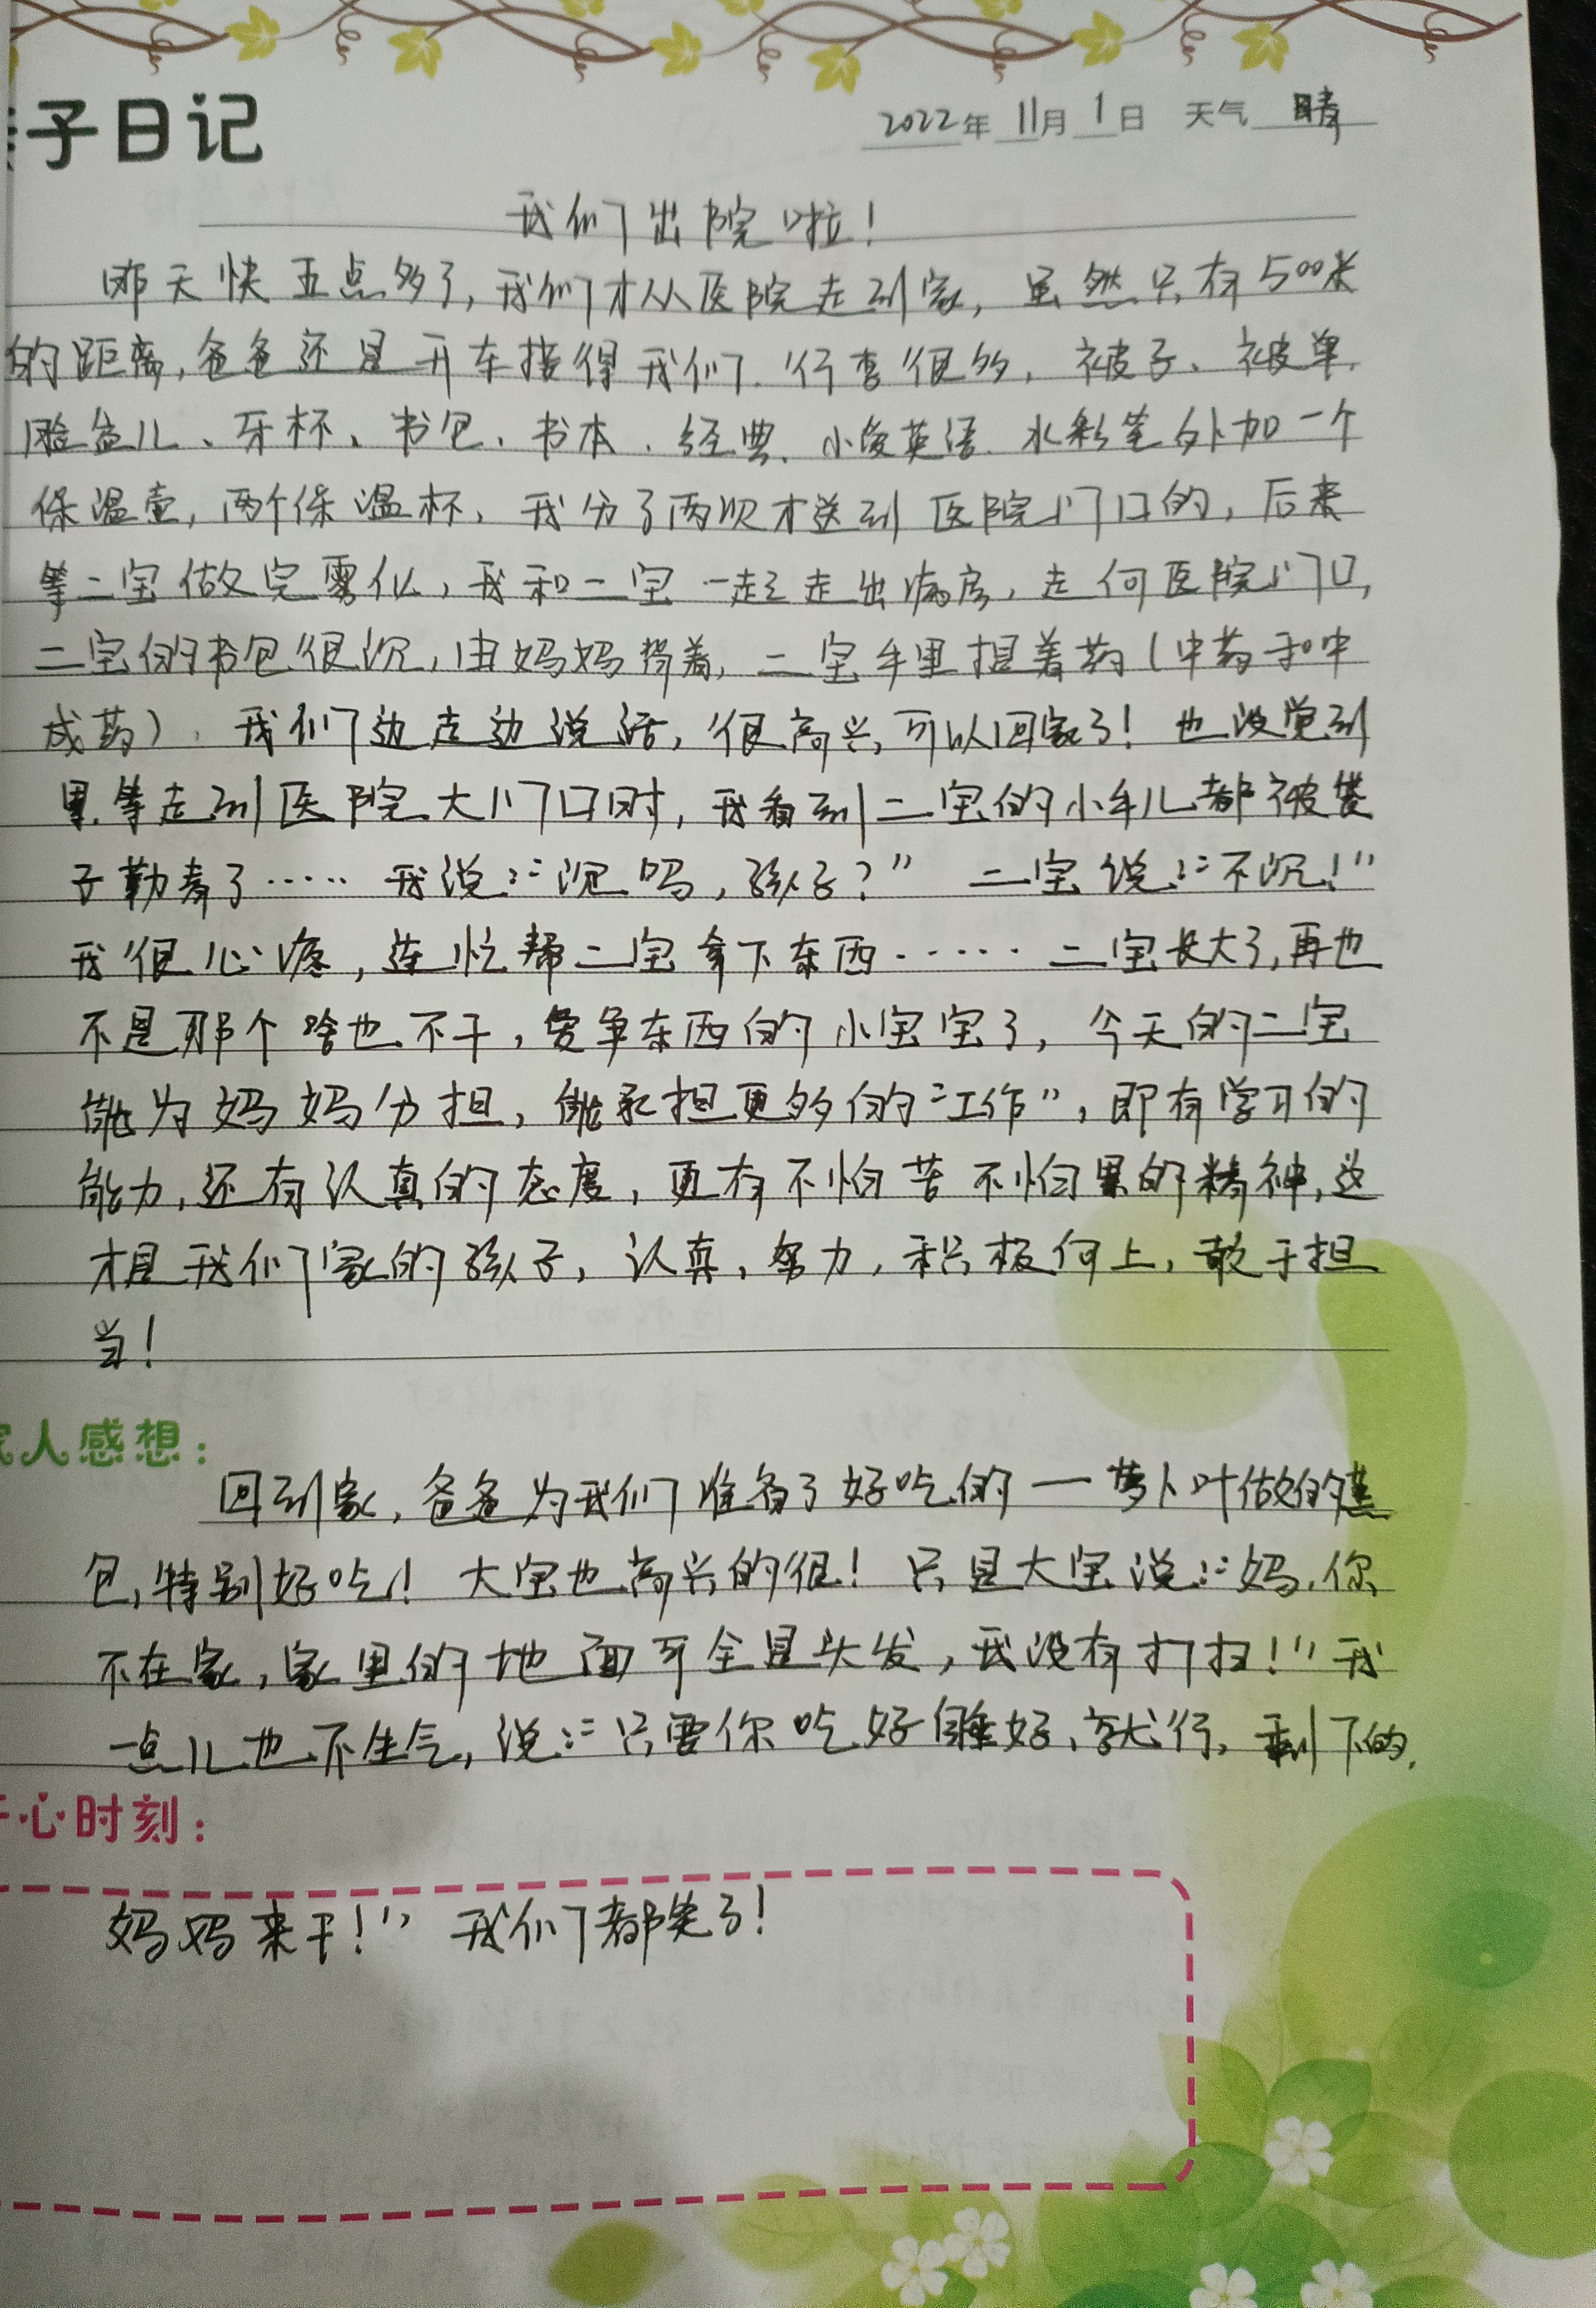 子日记
2022年 11月 1日 天气 晴
我们出院啦！
昨天快五点多了，我们才从医院走到家，虽然只有500米
的距离，爸爸还是开车接得我们．行李很多，被子、被单、
脸盆儿、牙杯、书包、书本、经典、小俊英语、水彩笔外加一个
保温壶，两个保温杯，我分了两次才送到医院门口的，后来
等二宝做完雾化，我和二宝一起走出病房，走向医院门口，
二宝的书包很沉，由妈妈背着，二宝手里担着药（中药和中
成药），我们边走边说话，很高兴，可以回家了！也没觉到
累，等走到医院大门口时，我看到二宝的小手儿都被袋
子勒青了…… 我说：“沉吗，孩子？” 二宝说：“不沉！”
我很心疼，连忙帮二宝拿下东西…… 二宝长大了，再也
不是那个啥也不干，爱争东西的小宝宝了，今天的二宝
能为妈妈分担，能承担更多的“工作”，即有学习的
能力，还有认真的态度，更有不怕苦不怕累的精神，这
才是我们家的孩子，认真，努力，积极向上，敢于担
当！
家人感想：
回到家，爸爸为我们准备了好吃的—萝卜叶做的蒸
包，特别好吃！大宝也高兴的很！只是大宝说：“妈，你
不在家，家里的地面可全是头发，我没有打扫！”我
一点儿也不生气，说：“只要你吃好睡好，就行，剩下的，
开心时刻：
妈妈来干！” 我们都笑了！